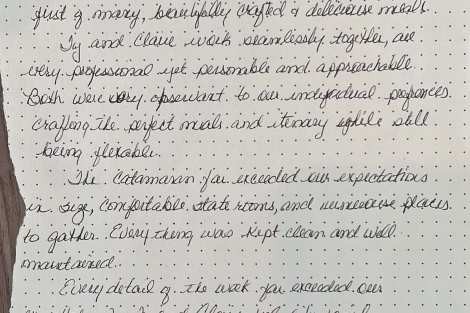 first of many, beautifully crafted & deliciouse meals.
Ty and Claire work seamlessly together, are
very professional yet personable and approachable.
Both were very observant to our individual
crafting the perfect meals and itenary while still
being flexable.
The Catamaran far exceeded our expectations
in size, comfortable state rooms, and numerouse places
to gather. Every thing was kept clean and well
maintained.
Every detail of the week far exceeded our